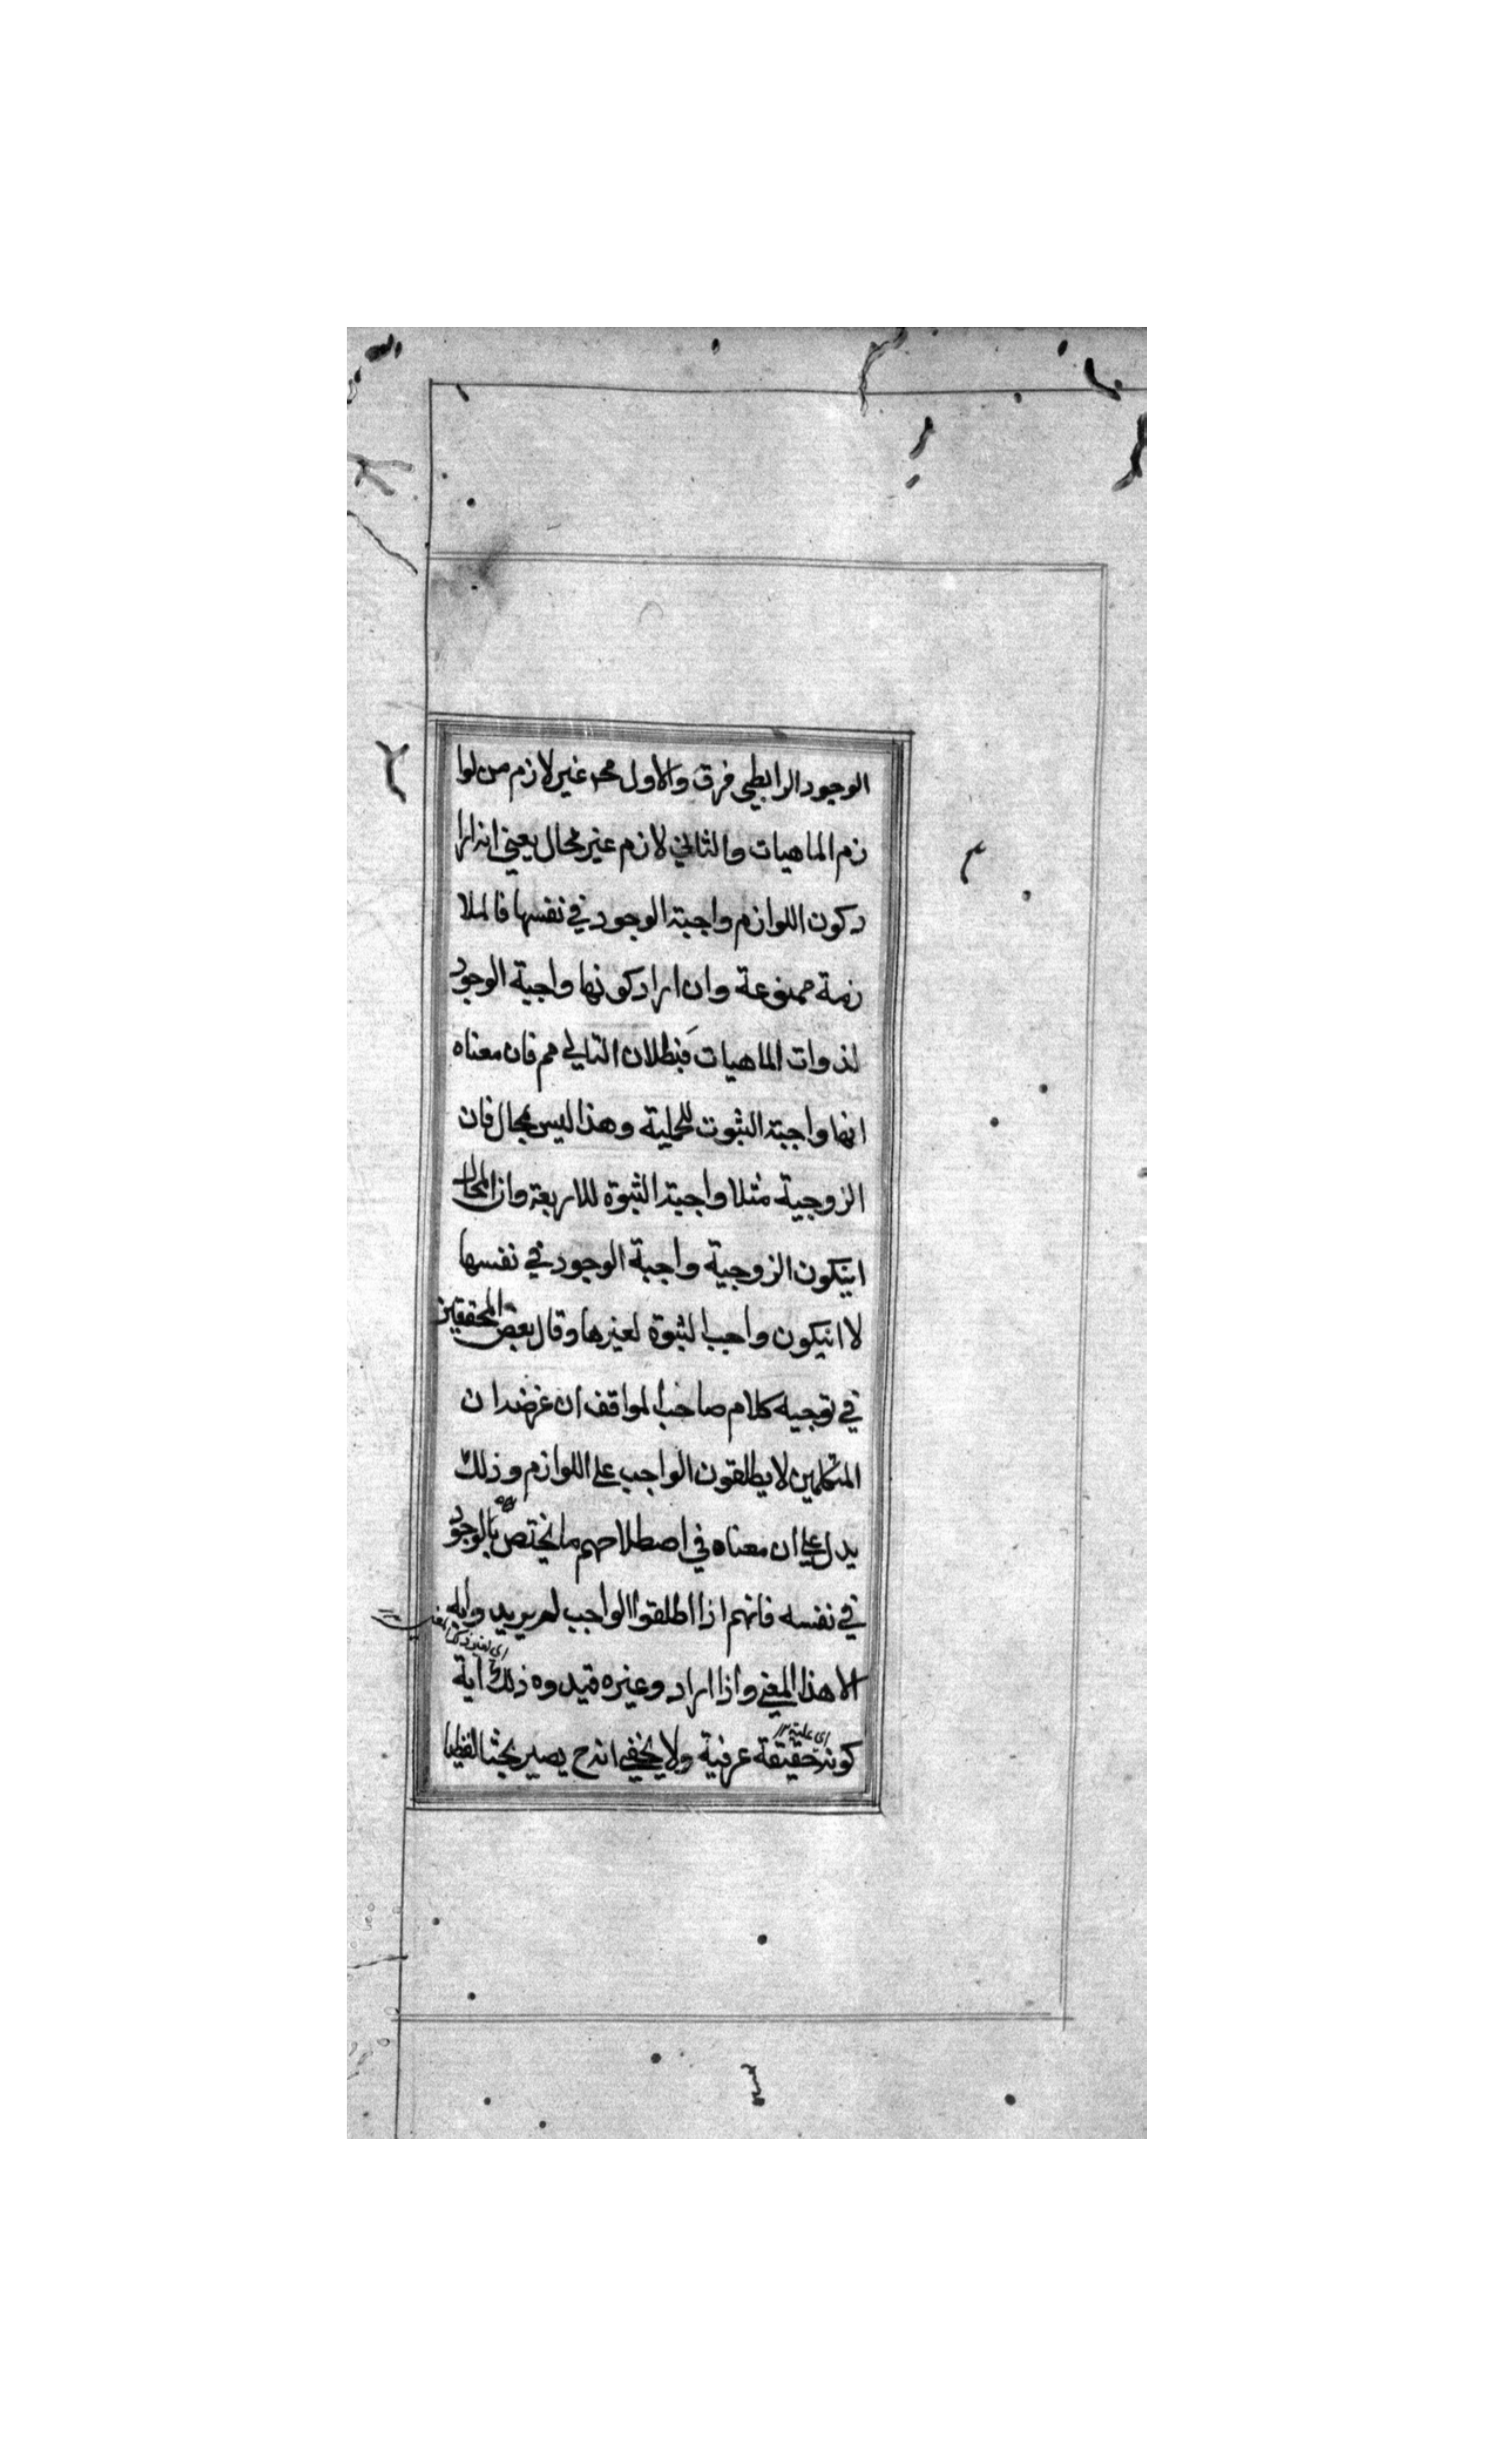 الوجود الرابطي فرق والاول مح غير لازم من لوا
زم الماهيات والثاني لازم غير محال يعني انه ارا
د كون اللوازم واجبة الوجود في نفسها فالملا
زمة ممنوعة وان اراد كونها واجبة الوجود
لذوات الماهيات فبطلان التالي مم فان معناه
انها واجبة الثبوت للمهية وهذا ليس بمحال فان
الزوجية مثلا واجبة الثبوة للاربعة وان المحال
ان يكون الزوجية واجبة الوجود في نفسها
لا ان يكون واجب الثبوة لغيرها وقال بعض المحققين
في توجيه كلام صاحب المواقف ان غرضه ان
المتكلمين لا يطلقون الواجب على اللوازم وذلك
يدل على ان معناه في اصطلاحهم ما يختص بالوجود
في نفسه فانهم اذا اطلقوا الواجب لم يريدوا به
الا هذا المعنى واذا ارادوا غيره قيدوه ذلك آية
كونه حقيقة عرفية ولا يخفى انه ح يصير بحثا لفظيا